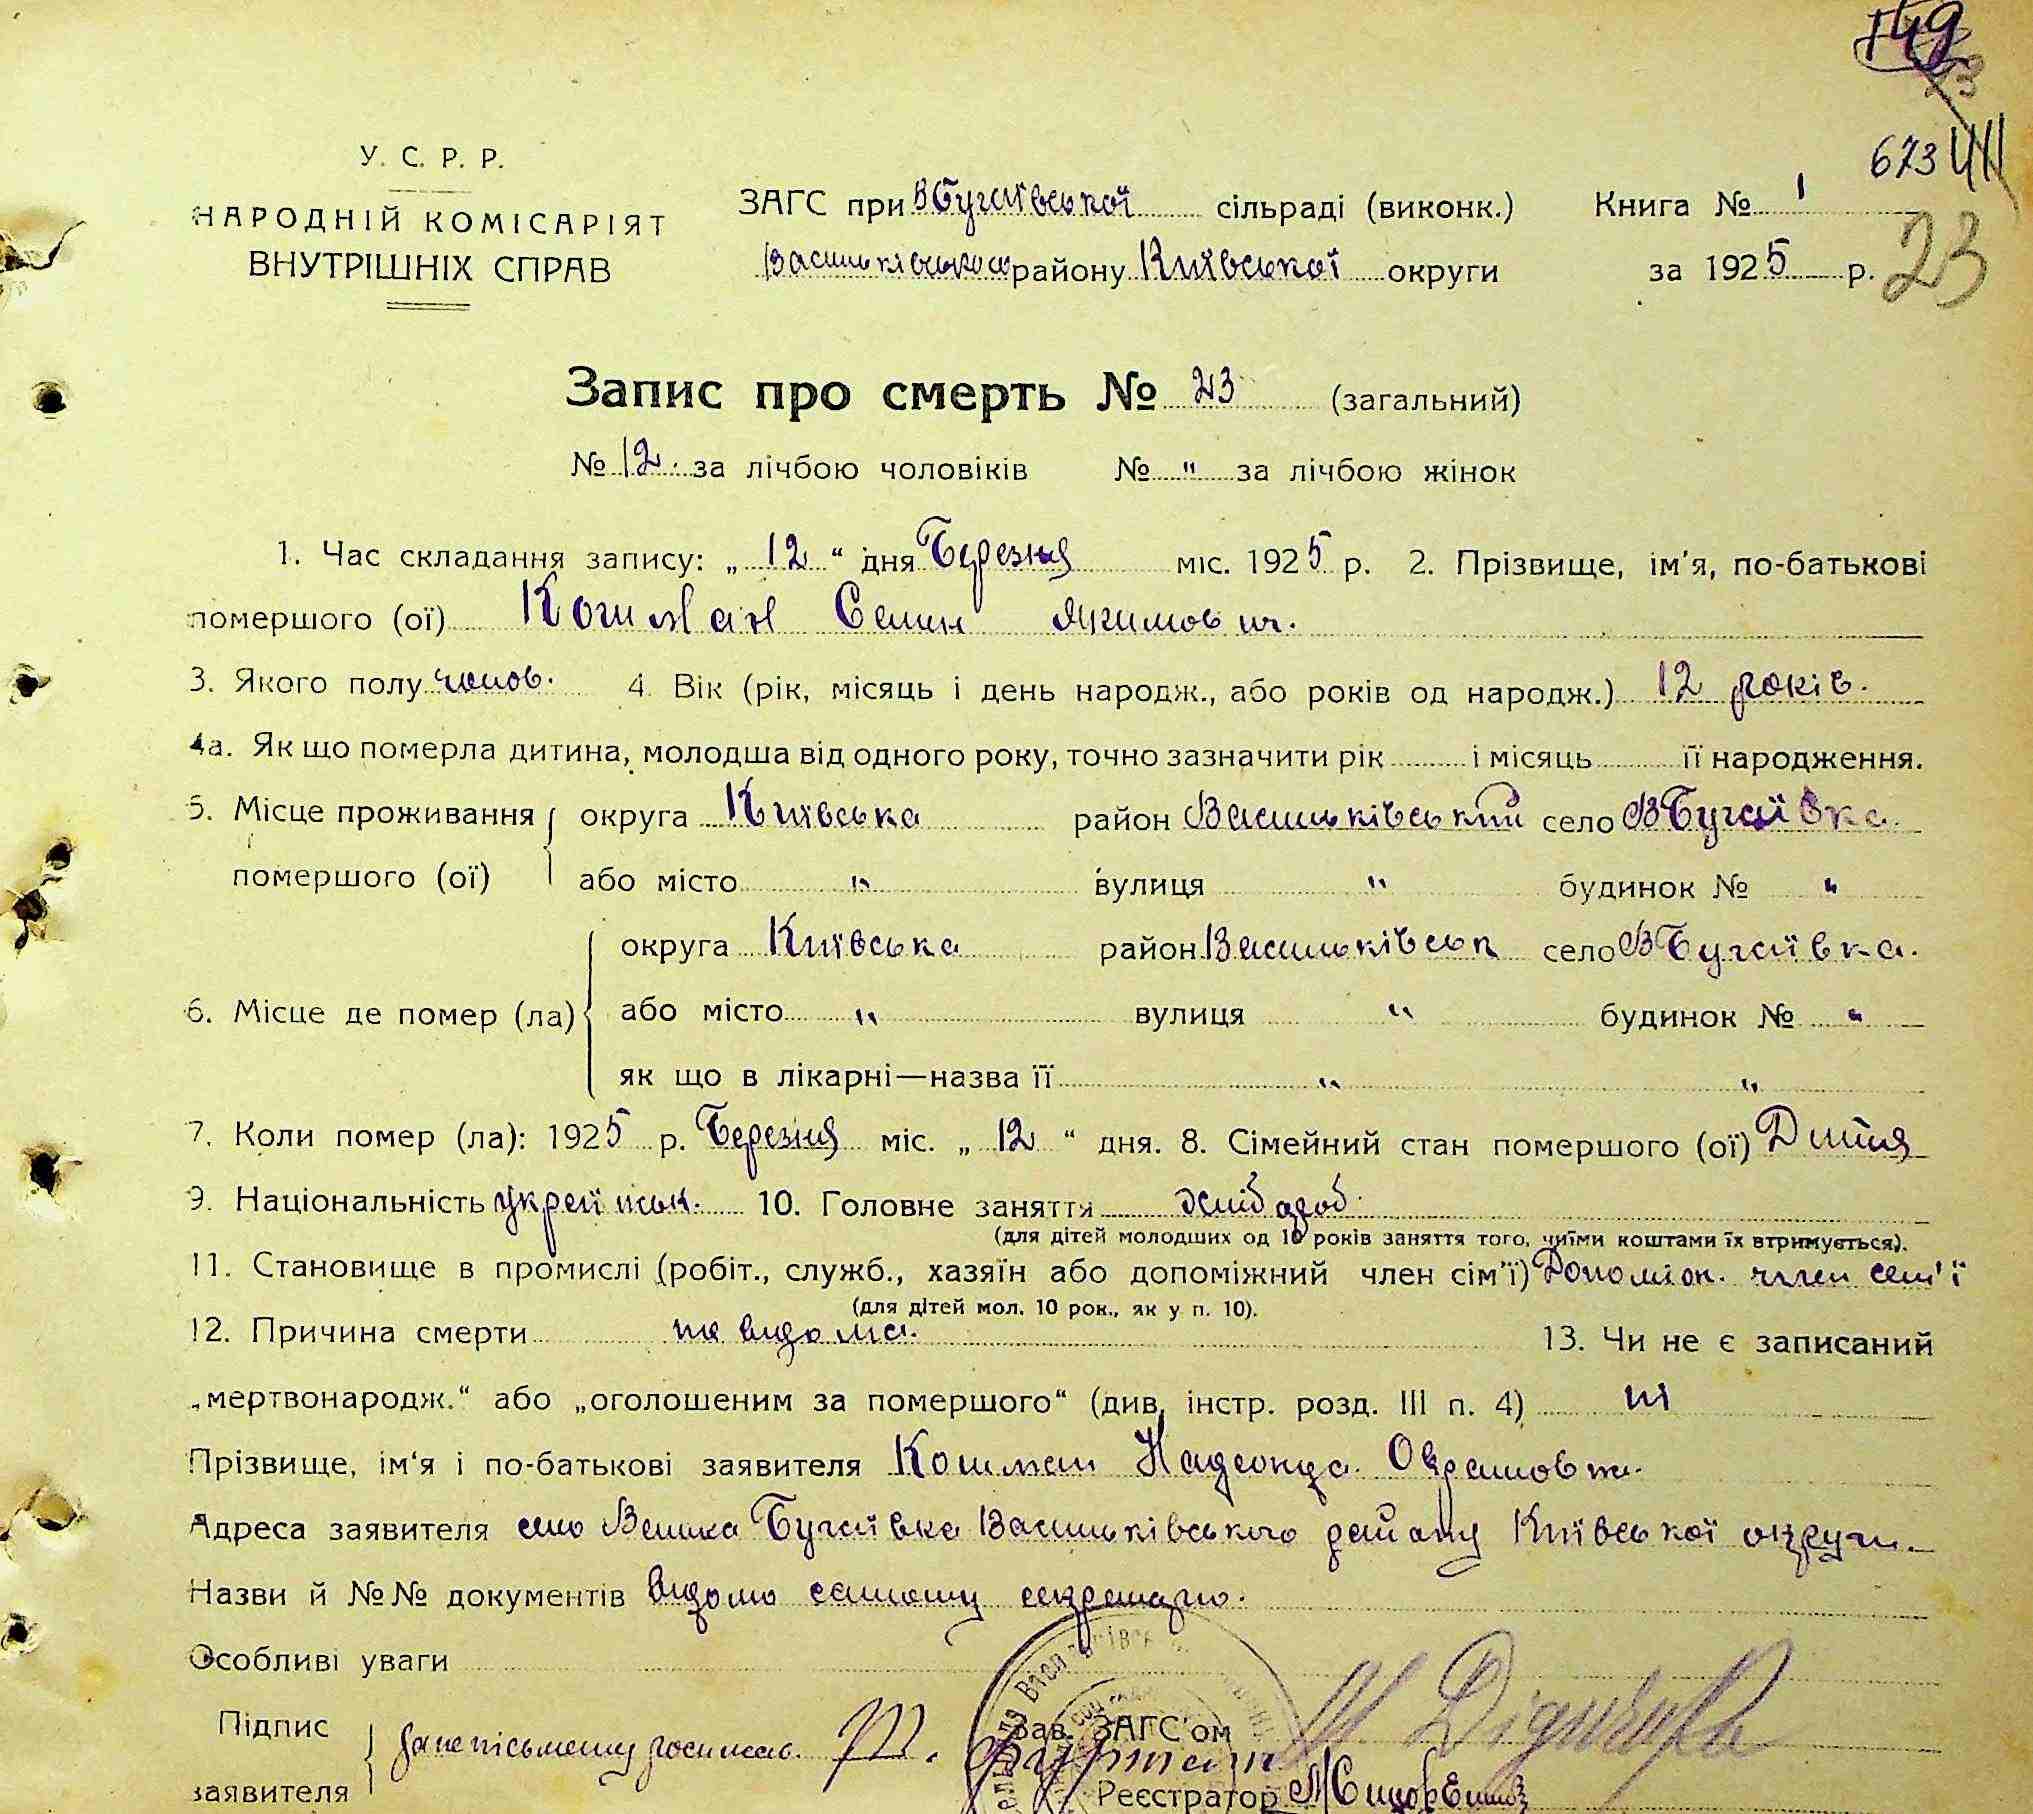 149
23
673
23
У. С. Р. Р.
НАРОДНІЙ КОМІСАРІЯТ
ВНУТРІШНІХ СПРАВ
ЗАГС при ВБугаївської сільраді (виконк.) Книга № 1
Васильківського району Київської округи за 1925 р.
Запис про смерть № 23 (загальний)
№ 12. за лічбою чоловіків № " за лічбою жінок
1. Час складання запису: „ 12 “ дня Березня міс. 1925 р. 2. Прізвище, ім'я, по-батькові
помершого (ої) Кошман Семен Якимович.
3. Якого полу чолов. 4. Вік (рік, місяць і день народж., або років од народж.) 12 років.
4а. Як що померла дитина, молодша від одного року, точно зазначити рік і місяць її народження.
5. Місце проживання округа Київська район Васильківський село ВБугаївка
помершого (ої) або місто " вулиця " будинок № "
округа Київська район Васильківськ село ВБугаївка.
6. Місце де помер (ла) або місто " вулиця " будинок № "
як що в лікарні—назва її " "
7. Коли помер (ла): 1925 р. Березня міс. „ 12 “ дня. 8. Сімейний стан помершого (ої) Дитя
9. Національність україньск. 10. Головне заняття хлібороб.
(для дітей молодших од 10 років заняття того, чиїми коштами їх втримується).
11. Становище в промислі (робіт., служб., хазяїн або допоміжний член сім'ї) Допоміж. член сем'ї
(для дітей мол. 10 рок., як у п. 10).
12. Причина смерти не видома. 13. Чи не є записаний
„мертвонародж.“ або „оголошеним за помершого“ (див. інстр. розд. III п. 4) ні
Прізвище, ім'я і по-батькові заявителя Кошман
Адреса заявителя село Велика Бугаївка Васильківського району Київської округи.
Назви й №№ документів видомо самому секретарю.
Особливі уваги
Підпис
заявителя
Зав. ЗАГС'ом
Реєстратор